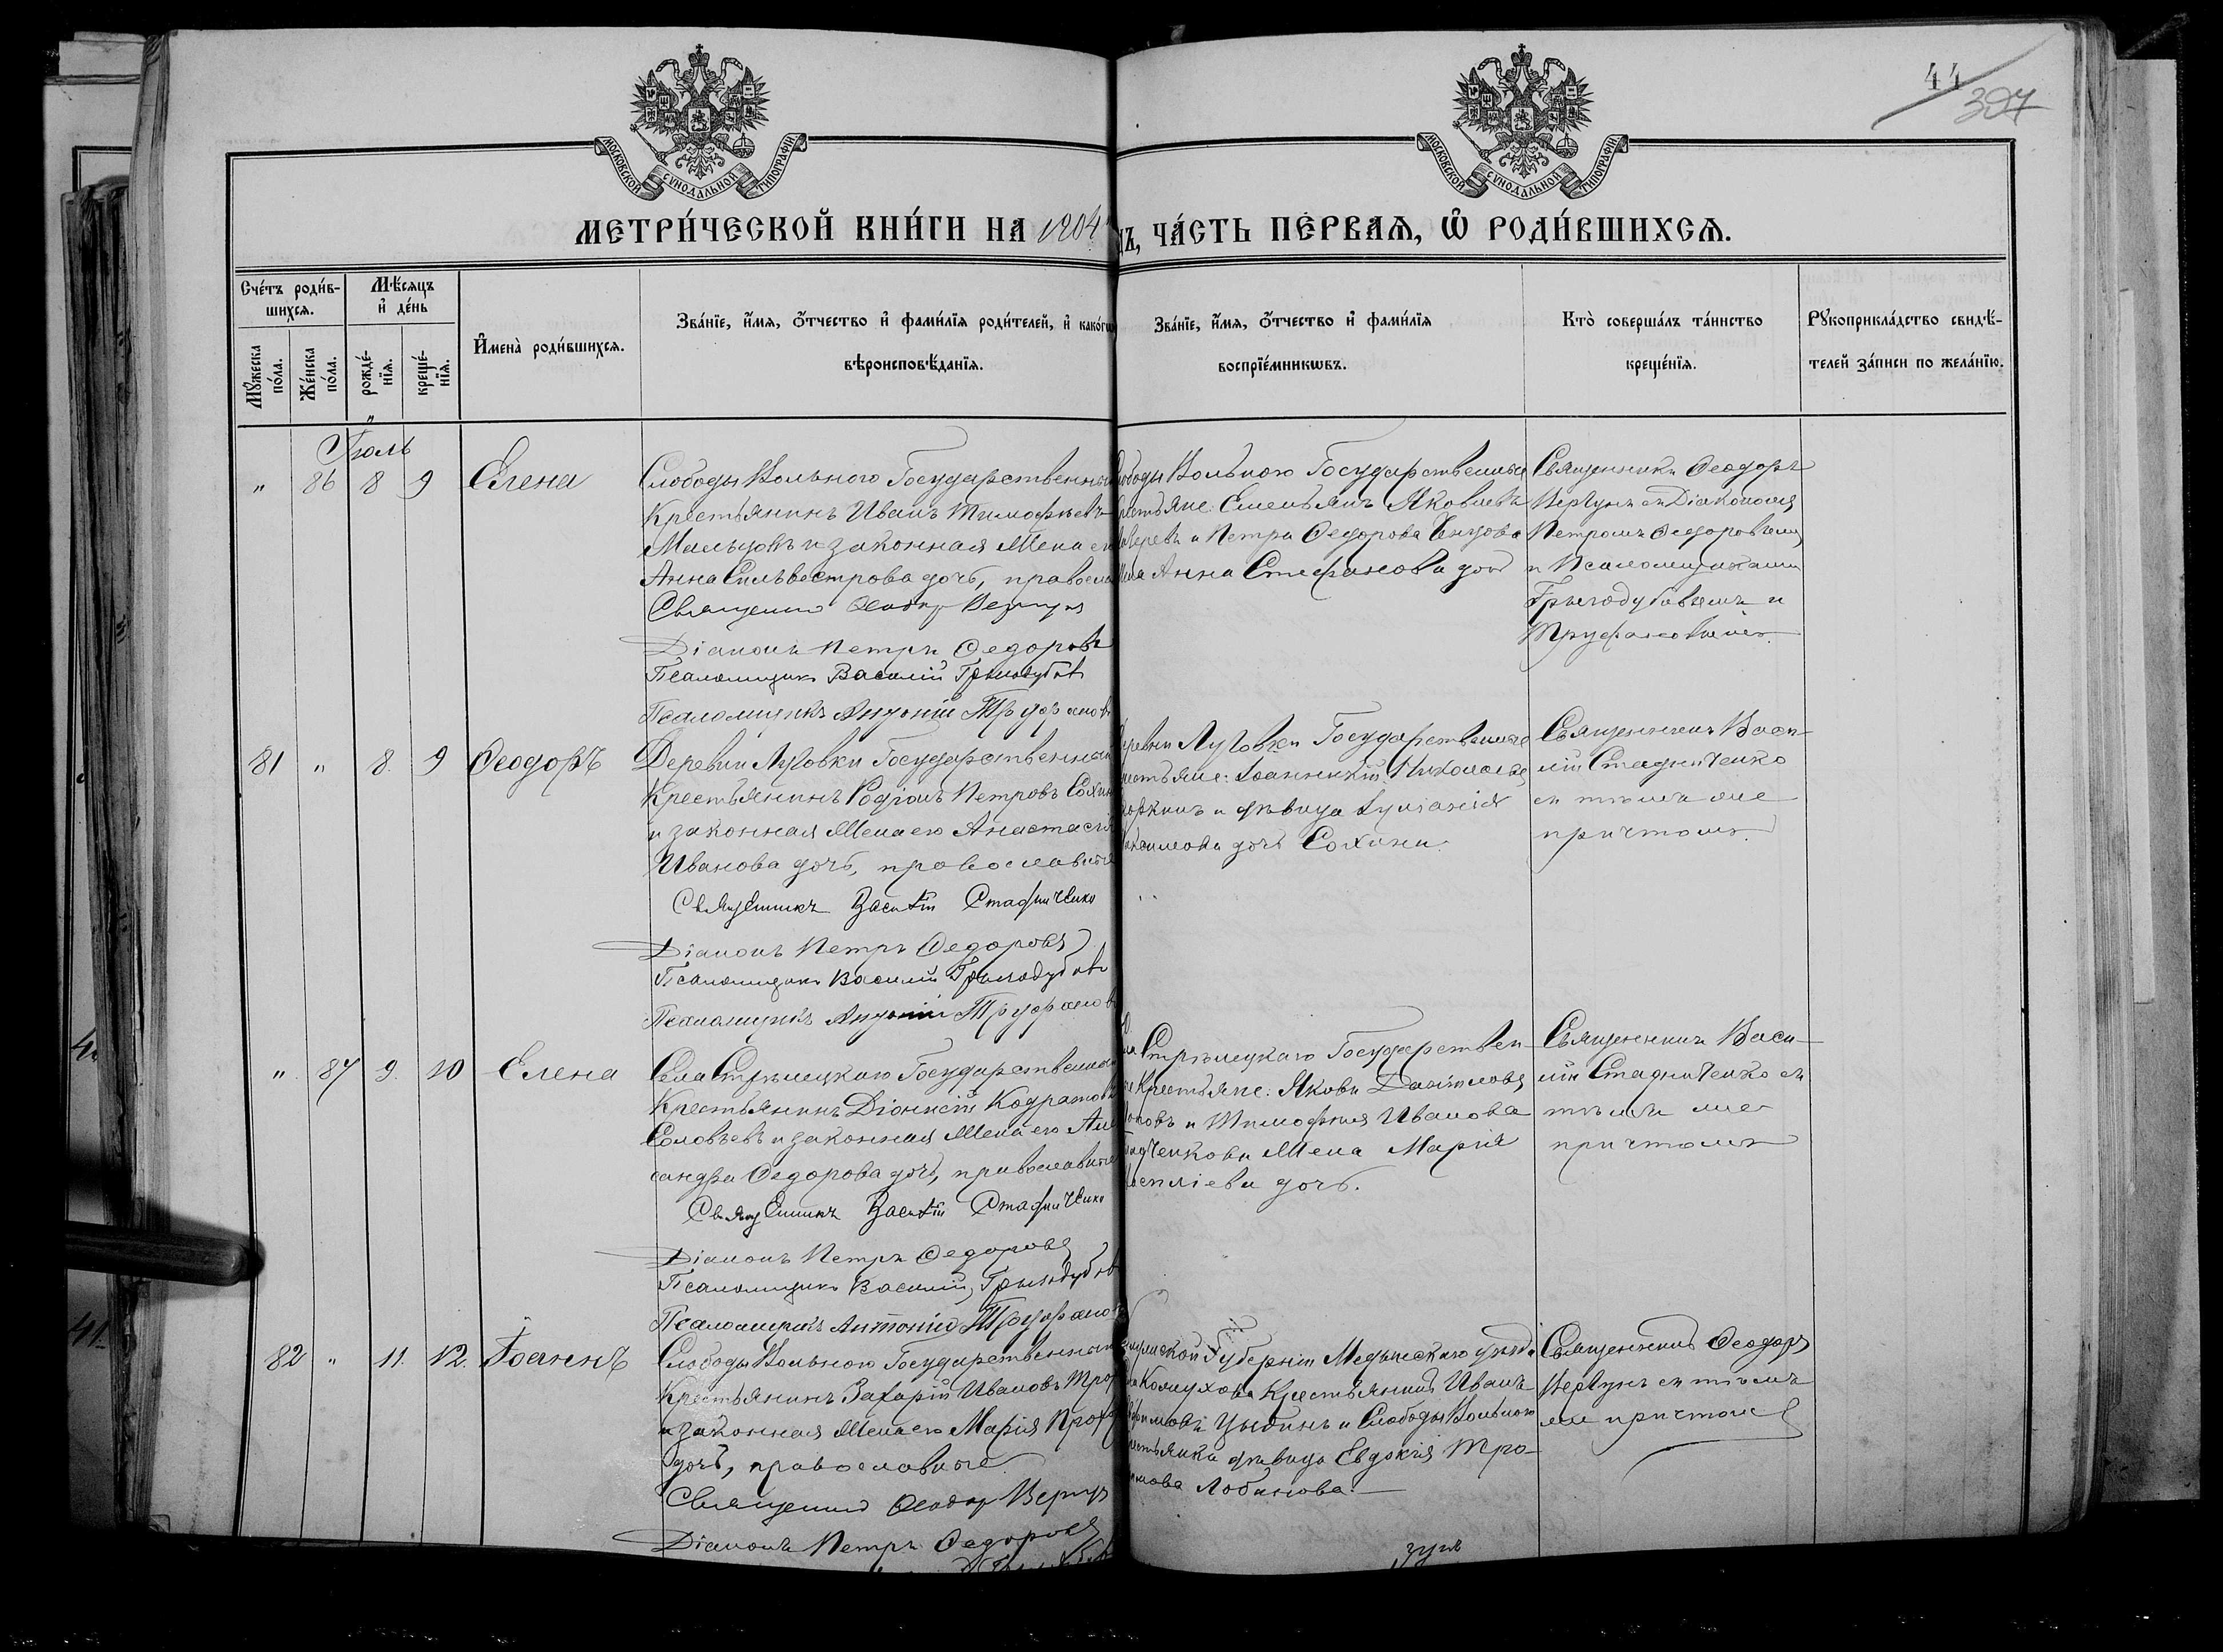 44
397
МОСКОВСКОЙ СѴНОДАЛЬНОЙ ТИПОГРАФІИ
МОСКОВСКОЙ СѴНОДАЛЬНОЙ ТИПОГРАФІИ
МЕТРИ́ЧЕСКОЙ КНИ́ГИ НА 1904
ЧА́СТЬ ПЕ́РВАѦ, Ѽ РОДИ́ВШИХСѦ.
Сче́тъ роди́в-
шихсѧ.
Мꙋ́жеска
по́ла.
Же́нска
по́ла.
Мѣ́сѧцъ
и҆ де́нь
рожде́-
нїѧ.
креще́-
нїѧ.
И҆мена̀ роди́вшихсѧ.
Зва́нїе, и҆́мѧ, ѻ҆́тчество и҆ фами́лїѧ роди́телей, и҆ како́гѡ
вѣроисповѣ́данїѧ.
Зва́нїе, и҆́мѧ, ѻ҆́тчество и҆ фами́лїѧ
воспрїе́мникѡвъ.
Кто̀ соверша́лъ та́инство
креще́нїѧ.
Рꙋкоприкла́дство свидѣ́-
телей за́писи по жела́нїю.
Іюль
" 86 8 9 Елена
Слободы Вольного Государственный
Крестьянинъ Иванъ Тимофеевъ
Мальцовъ и законная жена его
Анна Сильвестрова дочь,
Священникъ Ѳеодоръ Вергунъ
Діаконъ Петръ Ѳедоровъ
Псаломщикъ Василій
Псаломщикъ Антоній Труфановъ
Вольного Государственные
Емельянъ Яковлевъ
и Петра Ѳедорова
Анна Стефанова дочь
Священникъ Ѳеодоръ
Вергунъ съ Діакономъ
Петромъ Ѳедоровымъ
и Псаломщиками
и
Труфановымъ.
81 " 8. 9 Ѳеодоръ
Деревни Луговки Государственный
Крестьянинъ Родіонъ Петровъ
и законная жена его Анастасія
Иванова дочь, православные
Священникъ Василій Стадниченко
Діаконъ Петръ Ѳедоровъ
Псаломщикъ Василій
Псаломщикъ Антоній Труфановъ
Луговки Государственные
Іоанникій
и дѣвица
дочь Сохина.
Священникъ Васи-
лій Стадниченко
съ тѣмъ же
причтомъ.
" 87 9. 10 Елена
Села Стрѣлецкаго Государственный
Крестьянинъ Діонисій Кодратовъ
Соловьевъ и законная жена его Але
сандра Ѳедорова дочь, православные
Священникъ Василій Стадниченко
Діаконъ Петръ Ѳедоровъ
Псаломщикъ Василій
Псаломщикъ Антоній Труфановъ
Стрѣлецкаго Государствен-
Крестьяне: Яковъ Даніиловъ
и Тимофея Иванова
жена Марія
дочь.
Священникъ Васи-
лій Стадниченко съ
тѣмъ же
причтомъ
82 " 11. 12. Іоаннъ
Слободы Вольного Государственный
Крестьянинъ Захарій Ивановъ
и законная жена его Марія
дочь, православные
Священникъ Ѳеодоръ Вергунъ
Діаконъ Петръ Ѳедоровъ
Губерніи Медынскаго уѣзда
Крестьянинъ Иванъ
Цыбинъ и Слободы Вольного
дѣвица Евдокія Тро-
Лобанова.
Священникъ Ѳеодоръ
Вергунъ съ тѣмъ
же причтомъ